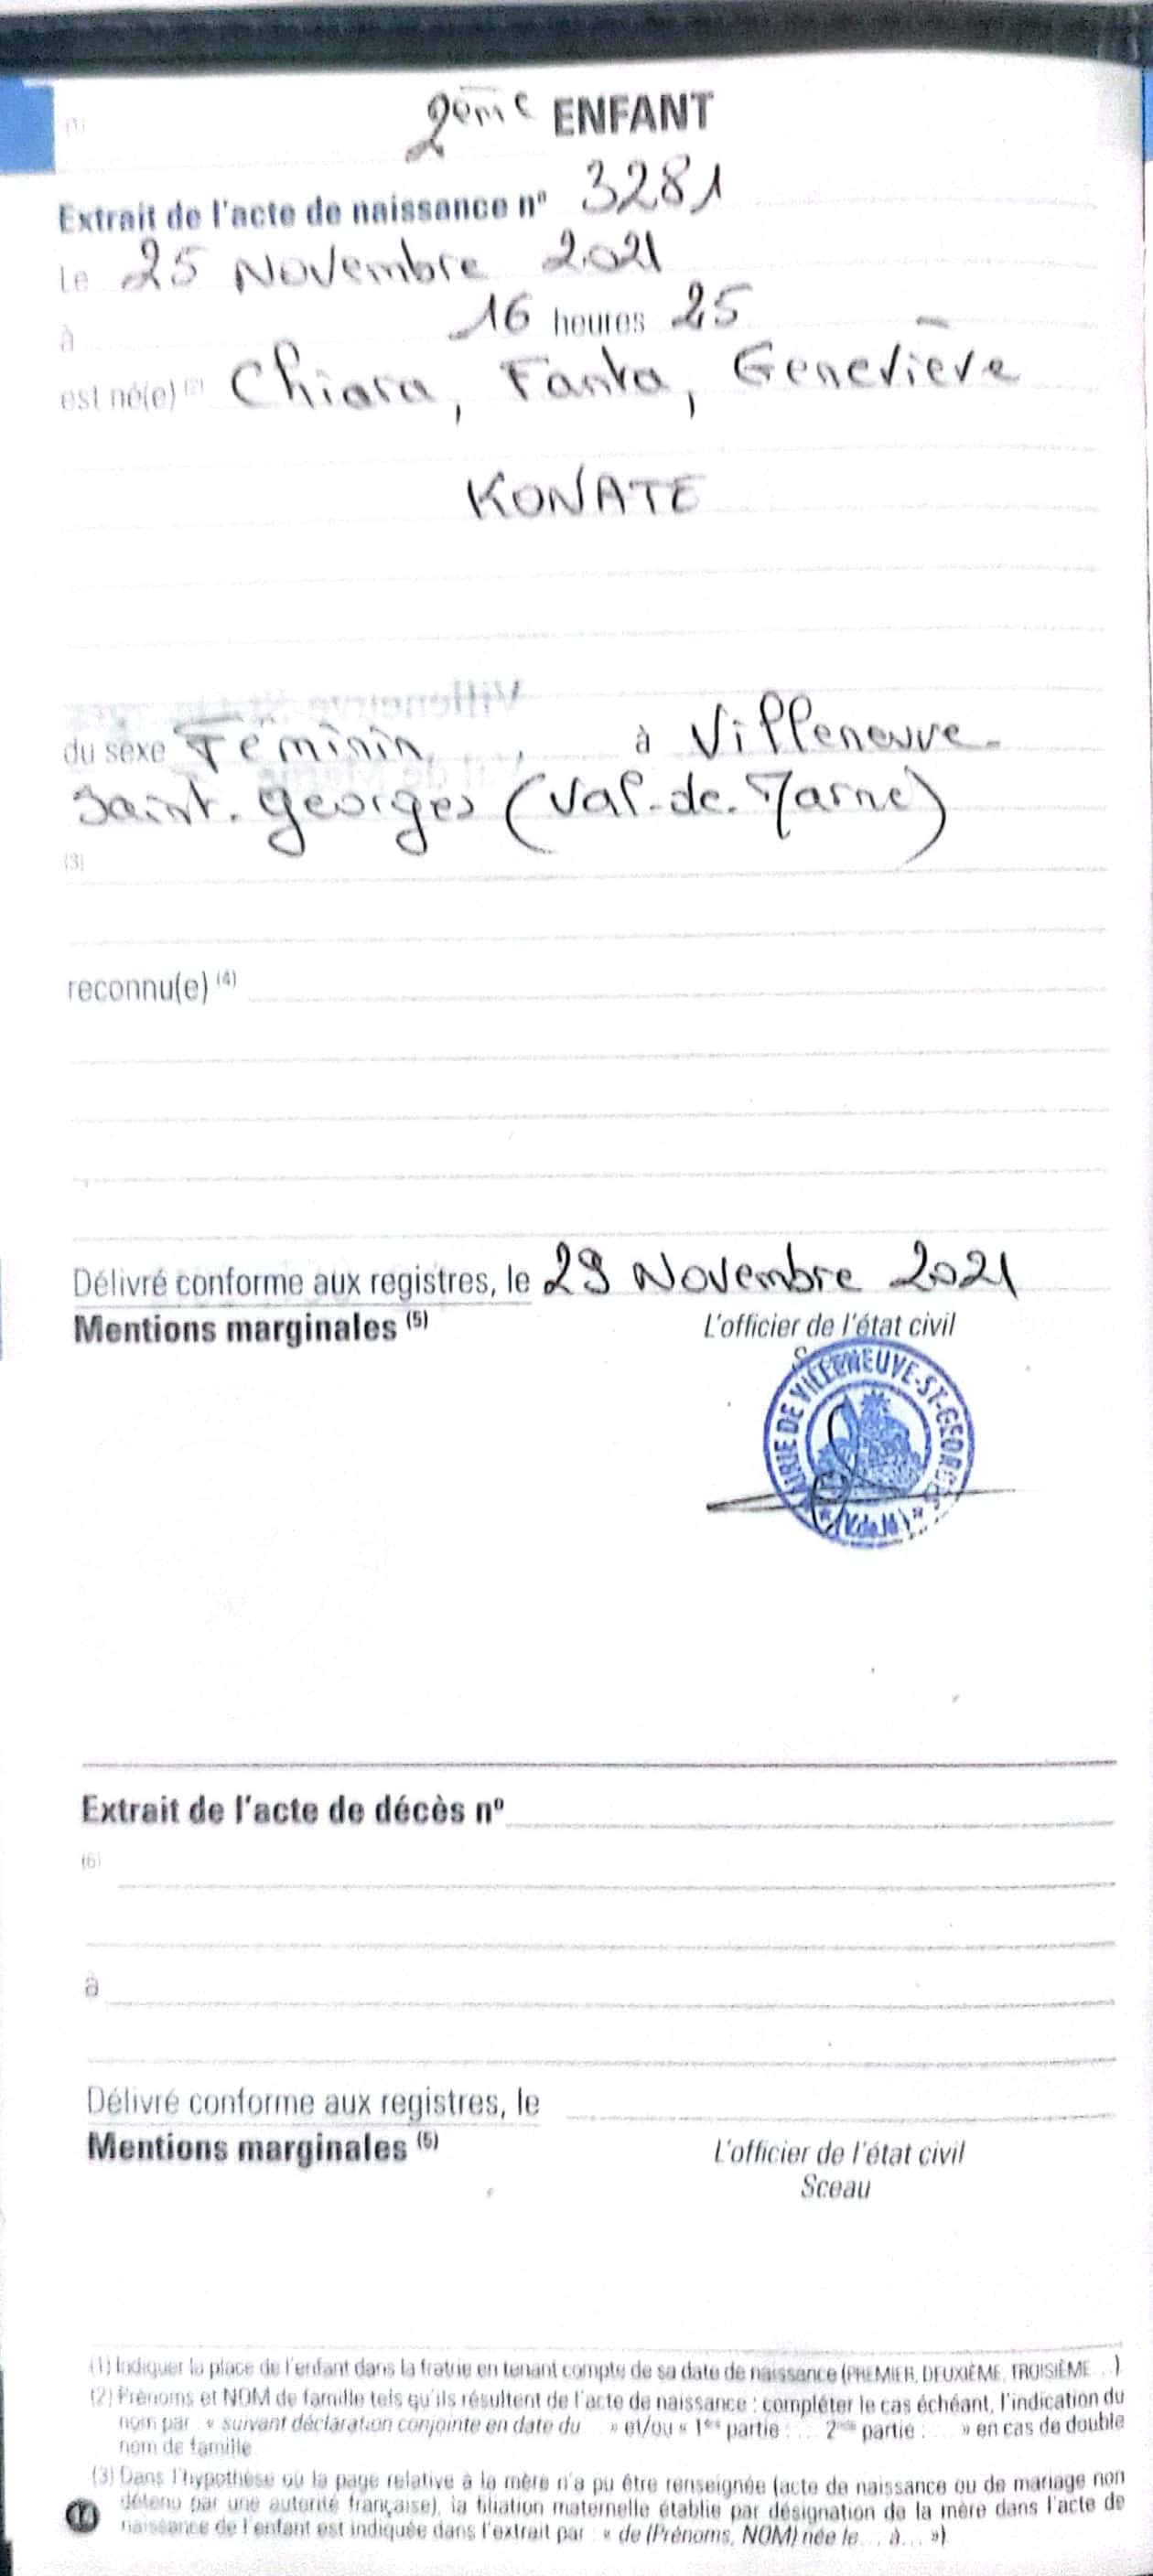 (1) 2ème ENFANT
Extrait de l'acte de naissance nº 3281
Le 25 Novembre 2021
à 16 heures 25
est né(e) (2) Chiara, Fanta, Geneviève
KONATE
du sexe Féminin, à Villeneuve-
Saint-Georges (Val-de-Marne)
(3)
reconnu(e) (4)
Délivré conforme aux registres, le 29 Novembre 2021
Mentions marginales (5) L'officier de l'état civil
MAIRIE DE VILLENEUVE-ST-GEORGES
(V.de.M)
Extrait de l'acte de décès nº
(6)
à
Délivré conforme aux registres, le
Mentions marginales (5) L'officier de l'état civil
Sceau
(1) Indiquer la place de l'enfant dans la fratrie en tenant compte de sa date de naissance (PREMIER, DEUXIÈME, TROISIÈME...)
(2) Prénoms et NOM de famille tels qu'ils résultent de l'acte de naissance ; compléter le cas échéant, l'indication du
nom par « suivant déclaration conjointe en date du » et/ou « 1ère partie : ... 2nde partie : ... » en cas de double
nom de famille
(3) Dans l'hypothèse où la page relative à la mère n'a pu être renseignée (acte de naissance ou de mariage non
détenu par une autorité française), la filiation maternelle établie par désignation de la mère dans l'acte de
naissance de l'enfant est indiquée dans l'extrait par : « de (Prénoms, NOM) née le... à... »)